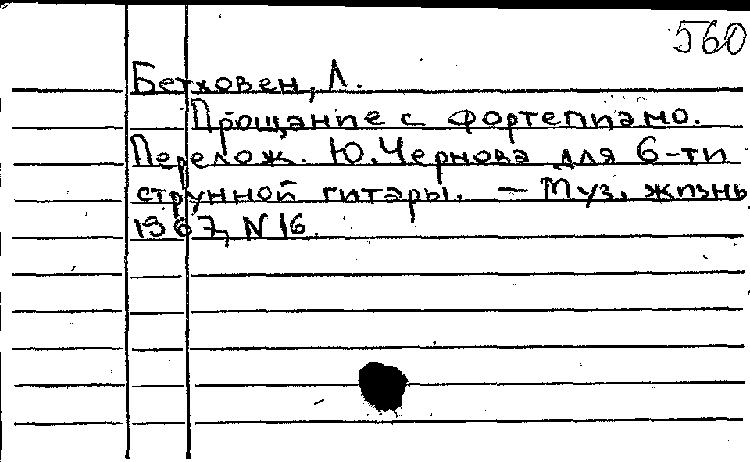 560
Бетховен, Л.
Прощание с фортепиано.
Перелож. Ю. Чернова для 6-ти
струнной гитары. — Муз. жизнь
1967, N 16.